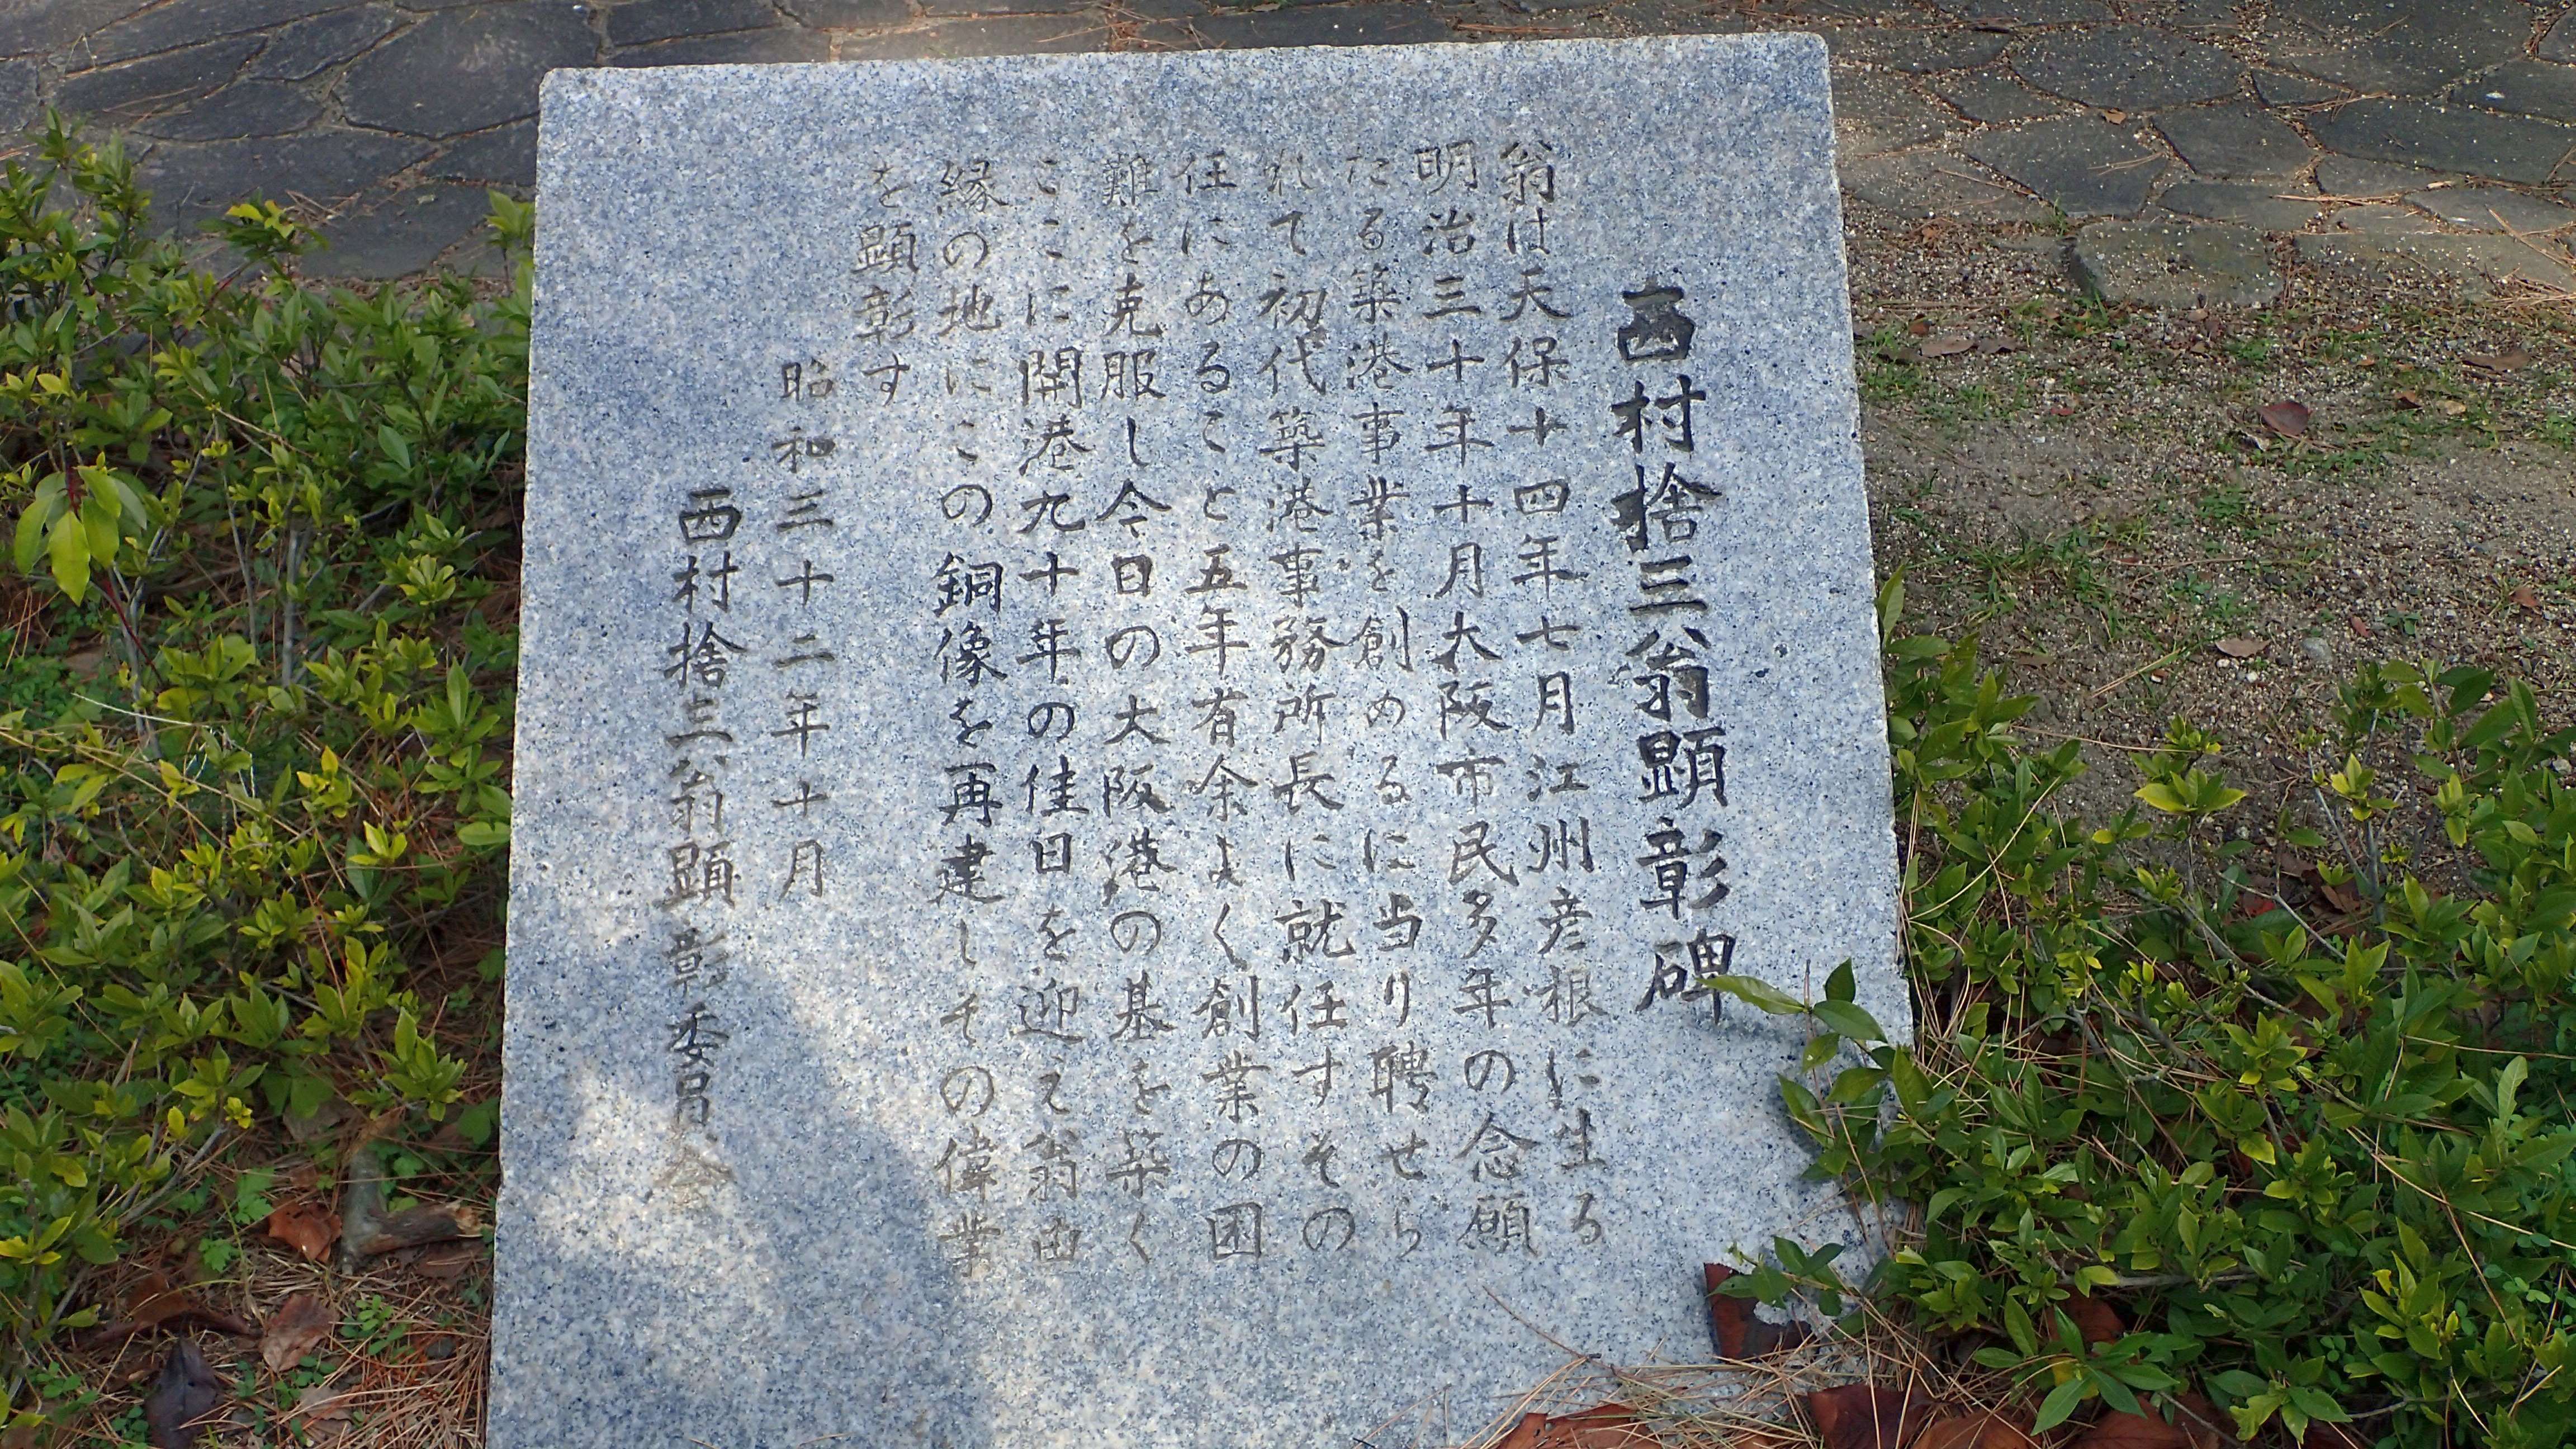 西村捨三翁顕彰碑
翁は天保十四年七月江州彦根に生る
明治三十年十月大阪市民多年の念願
たる築港事業を創めるに当り聘せら
れて初代築港事務所長に就任すその
任にあること五年有余よく創業の困
難を克服し今日の大阪港の基を築く
ここに開港九十年の佳日を迎え翁由
縁の地にこの銅像を再建しその偉業
を顕彰す
昭和三十二年十月
西村捨三翁顕彰委員会